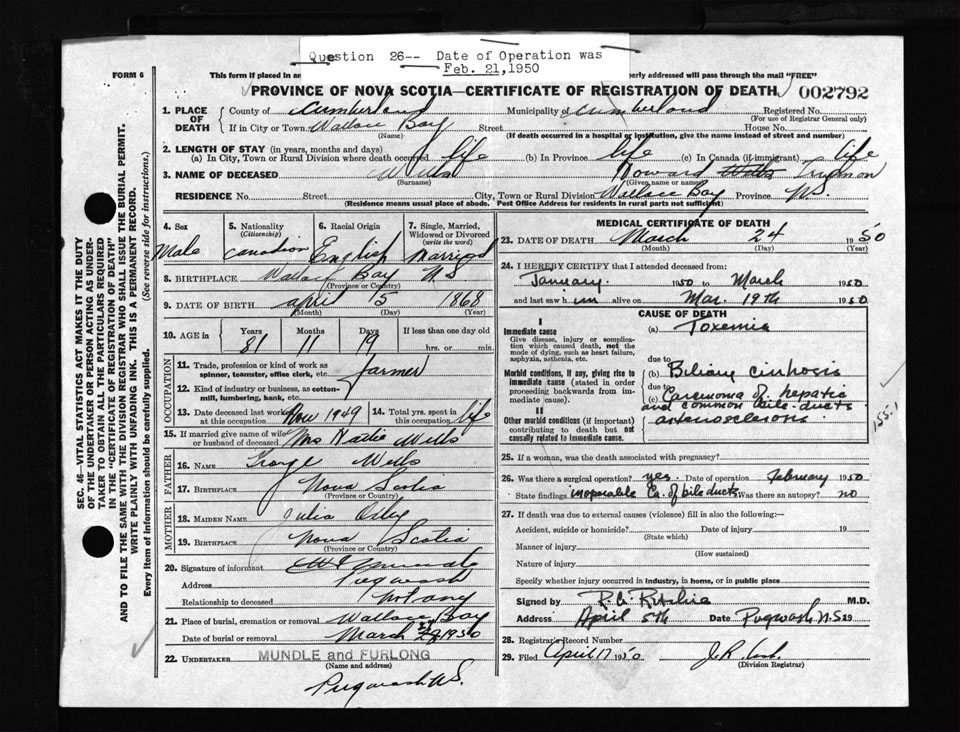 Question 26-- Date of Operation was
Feb. 21, 1950
FORM 6
This form if placed in an
perly addressed will pass through the mail "FREE"
PROVINCE OF NOVA SCOTIA—CERTIFICATE OF REGISTRATION OF DEATH
002792
1. PLACE OF DEATH
County of Cumberland Municipality of Cumberland Registered No.
(For use of Registrar General only)
If in City or Town Wallace Bay Street House No.
(Name) (If death occurred in a hospital or institution, give the name instead of street and number)
2. LENGTH OF STAY (in years, months and days)
(a) In City, Town or Rural Division where death occurred life (b) In Province life (c) In Canada (if immigrant) life
3. NAME OF DECEASED Wells Howard Truman
(Surname) (Given name or names)
RESIDENCE No. Street City, Town or Rural Division Wallace Bay Province N.S.
(Residence means usual place of abode. Post Office Address for residents in rural parts not sufficient)
4. Sex 5. Nationality (Citizenship) 6. Racial Origin 7. Single, Married, Widowed or Divorced (write the word)
Male Canadian English Married
8. BIRTHPLACE Wallace Bay N S
(Province or Country)
9. DATE OF BIRTH April 5 1868
(Month) (Day) (Year)
10. AGE in Years Months Days If less than one day old
81 11 19 hrs. or min.
OCCUPATION
11. Trade, profession or kind of work as spinner, teamster, office clerk, etc. farmer
12. Kind of industry or business, as cotton-mill, lumbering, bank, etc.
13. Date deceased last worked at this occupation Nov 1949 14. Total yrs. spent in this occupation life
15. If married give name of wife or husband of deceased Mrs Hattie Wells
FATHER
16. NAME George Wells
17. BIRTHPLACE Nova Scotia
(Province or Country)
MOTHER
18. MAIDEN NAME Julia
19. BIRTHPLACE Nova Scotia
(Province or Country)
20. Signature of informant
Address Pugwash
Relationship to deceased not any
21. Place of burial, cremation or removal Wallace Bay
Date of burial or removal March 1950
22. UNDERTAKER MUNDLE and FURLONG
(Name and address)
Pugwash N.S.
MEDICAL CERTIFICATE OF DEATH
23. DATE OF DEATH March 24 1950
(Month) (Day) (Year)
24. I HEREBY CERTIFY that I attended deceased from:
January 1950 to March 1950
and last saw him alive on Mar. 19th 1950
CAUSE OF DEATH
I
Immediate cause
Give disease, injury or complication which caused death, not the mode of dying, such as heart failure, asphyxia, asthenia, etc.
(a) Toxemia
due to
Morbid conditions, if any, giving rise to immediate cause (stated in order proceeding backwards from immediate cause).
(b) Biliary cirrhosis
due to
(c) Carcinoma of hepatic
and common bile ducts
155.1
II
Other morbid conditions (if important) contributing to death but not causally related to immediate cause.
arterosclerosis
25. If a woman, was the death associated with pregnancy?
26. Was there a surgical operation? yes. Date of operation February 1950
State findings inoperable Ca. of bile ducts Was there an autopsy? no
27. If death was due to external causes (violence) fill in also the following:—
Accident, suicide or homicide? Date of injury 19
(State which)
Manner of injury
(How sustained)
Nature of injury
Specify whether injury occurred in industry, in home, or in public place
Signed by M.D.
Address April 5th Date Pugwash N.S. 19
28. Registrar's Record Number
29. Filed April 17 1950
(Division Registrar)
SEC. 46—VITAL STATISTICS ACT MAKES IT THE DUTY
OF THE UNDERTAKER OR PERSON ACTING AS UNDER-
TAKER TO OBTAIN ALL THE PARTICULARS REQUIRED
IN THE "CERTIFICATE OF REGISTRATION OF DEATH"
AND TO FILE THE SAME WITH THE DIVISION REGISTRAR WHO SHALL ISSUE THE BURIAL PERMIT.
WRITE PLAINLY WITH UNFADING INK. THIS IS A PERMANENT RECORD.
Every item of information should be carefully supplied. (See reverse side for instructions.)